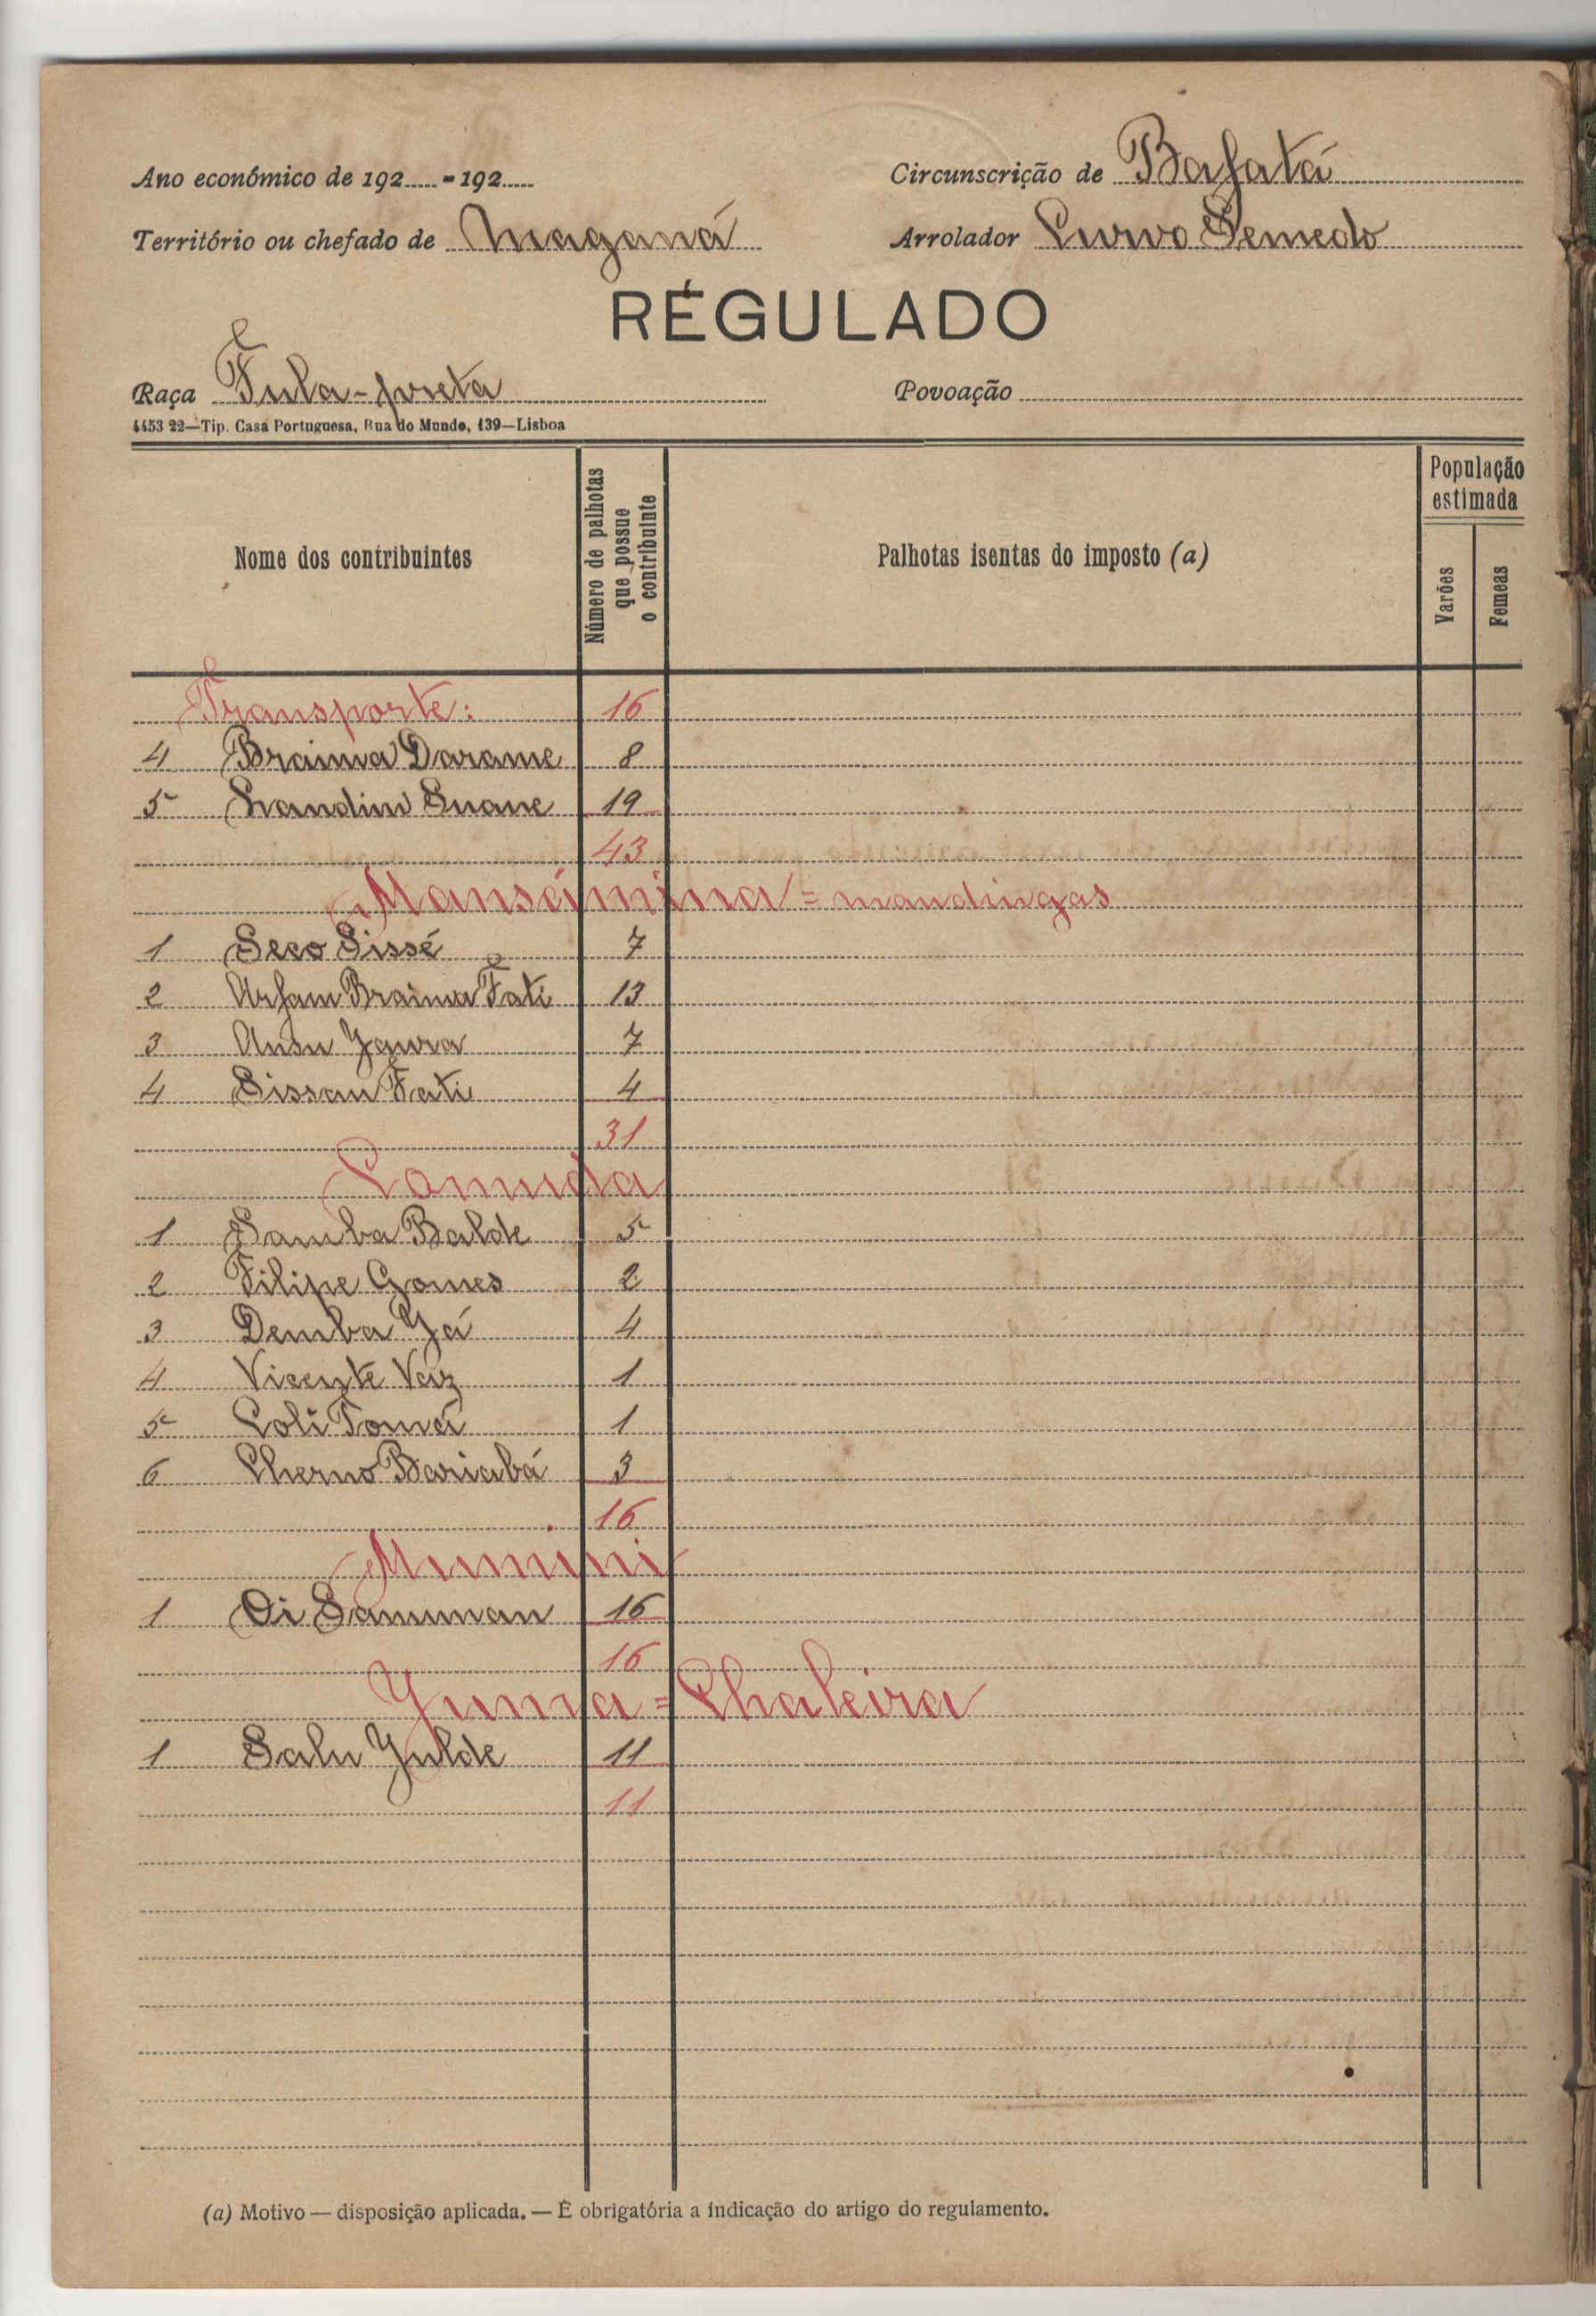 Ano económico de 192.....-192.....
Circunscrição de Bafatá
Território ou chefado de Maganá
Arrolador Curvo Semedo
RÉGULADO
Raça Fula-preta
Povoação
4453 22—Tip. Casa Portuguesa, Rua do Mundo, 139—Lisboa
Nome dos contribuintes
Número de palhotas que possue o contribuinte
Palhotas isentas do imposto (a)
População estimada
Varões
Femeas
Transporte: 16
4 Braima Darame 8
5 Suane 19
43
Mansámina = mandingas
1 Seco Sissé 7
2 Arfam Braima Fati 13
3 Ansu Yawra 7
4 Sissau Fati 4
31
Comuda
1 Samba Balde 5
2 Filipe Gomes 2
3 Demba Já 4
4 Vicente Vaz 1
5 Coli Tomá 1
6 Cherno Bariabá 3
16
Mumini
1 Di Samuman 16
16
Yuma = Chaleira
1 Salu Yulde 11
11
(a) Motivo — disposição aplicada. — É obrigatória a indicação do artigo do regulamento.